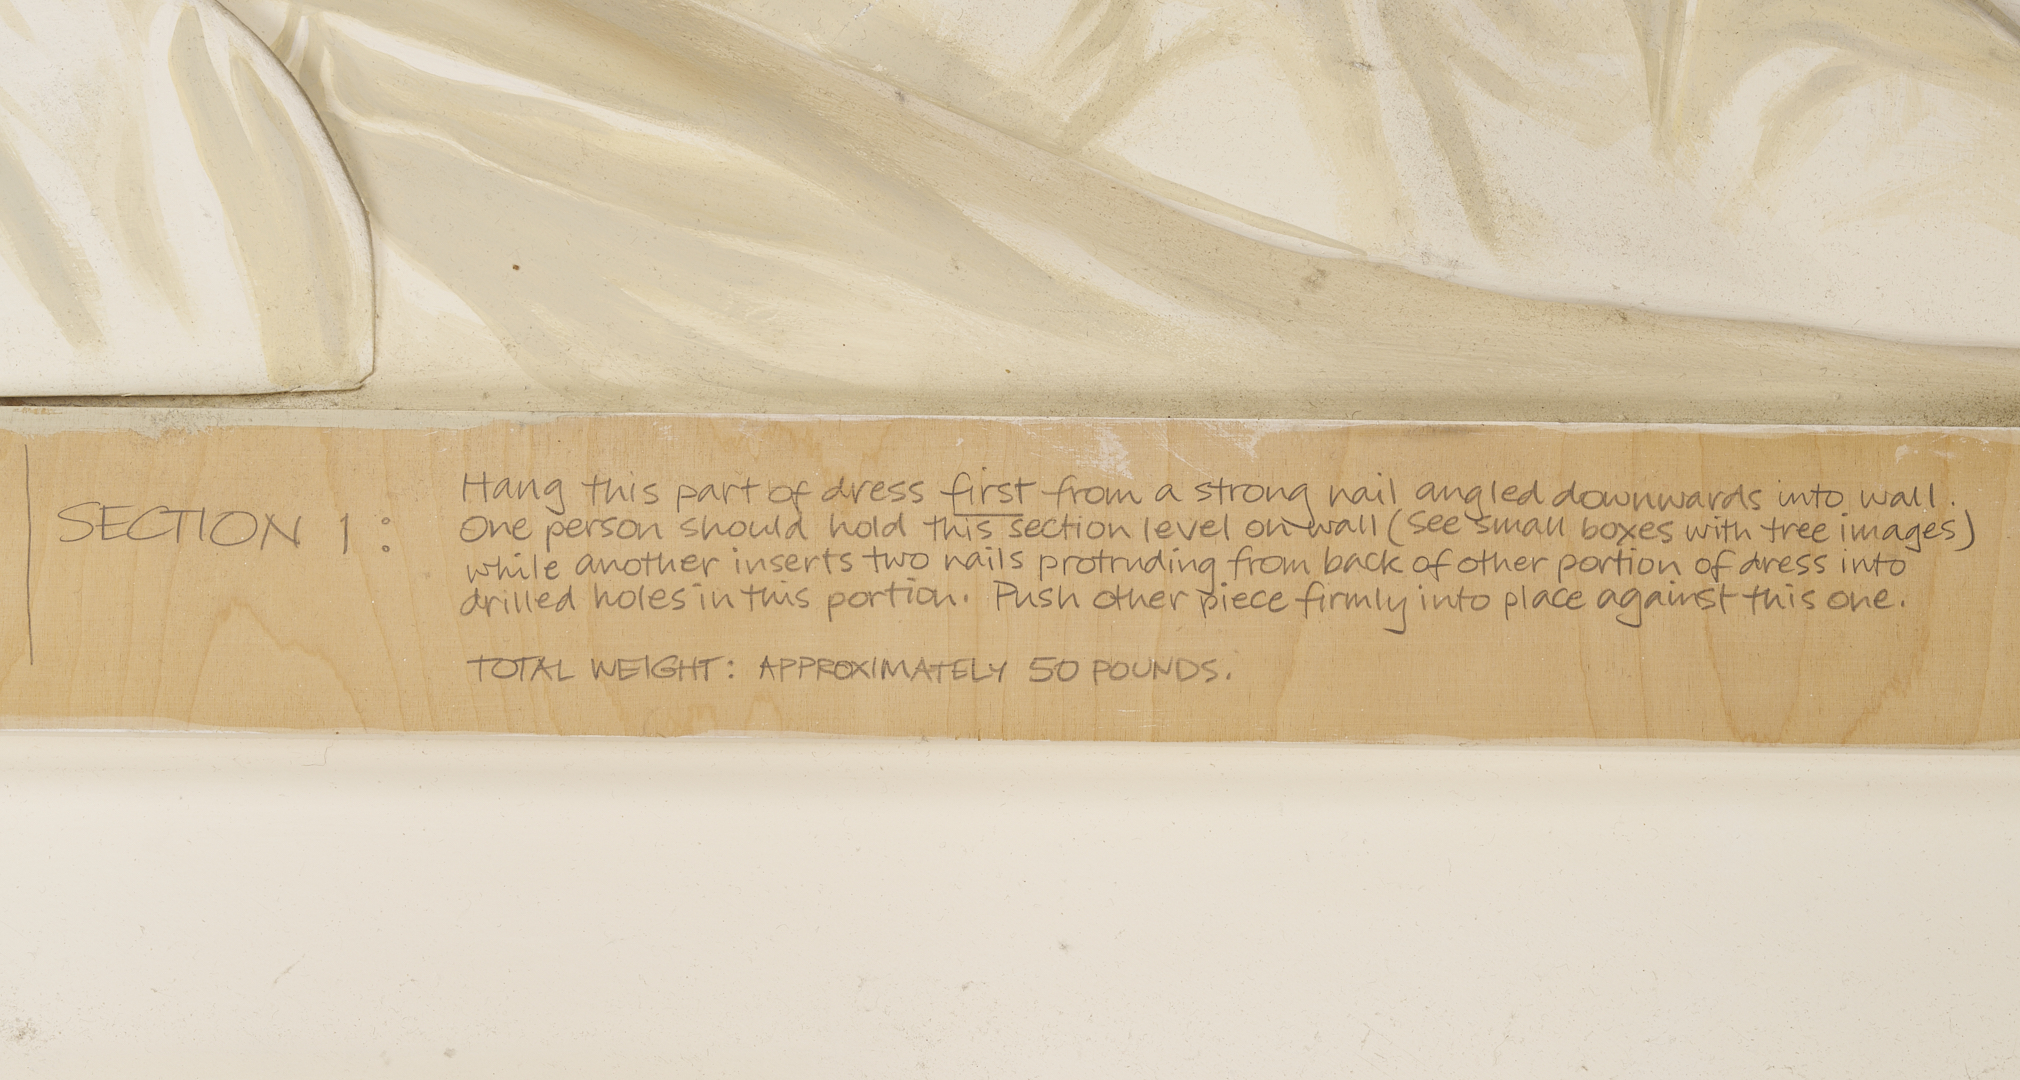 SECTION 1:
Hang this part of dress first from a strong nail angled downwards into wall.
One person should hold this section level on wall (see small boxes with tree images)
while another inserts two nails protruding from back of other portion of dress into
drilled holes in this portion. Push other piece firmly into place against this one.
TOTAL WEIGHT: APPROXIMATELY 50 POUNDS.